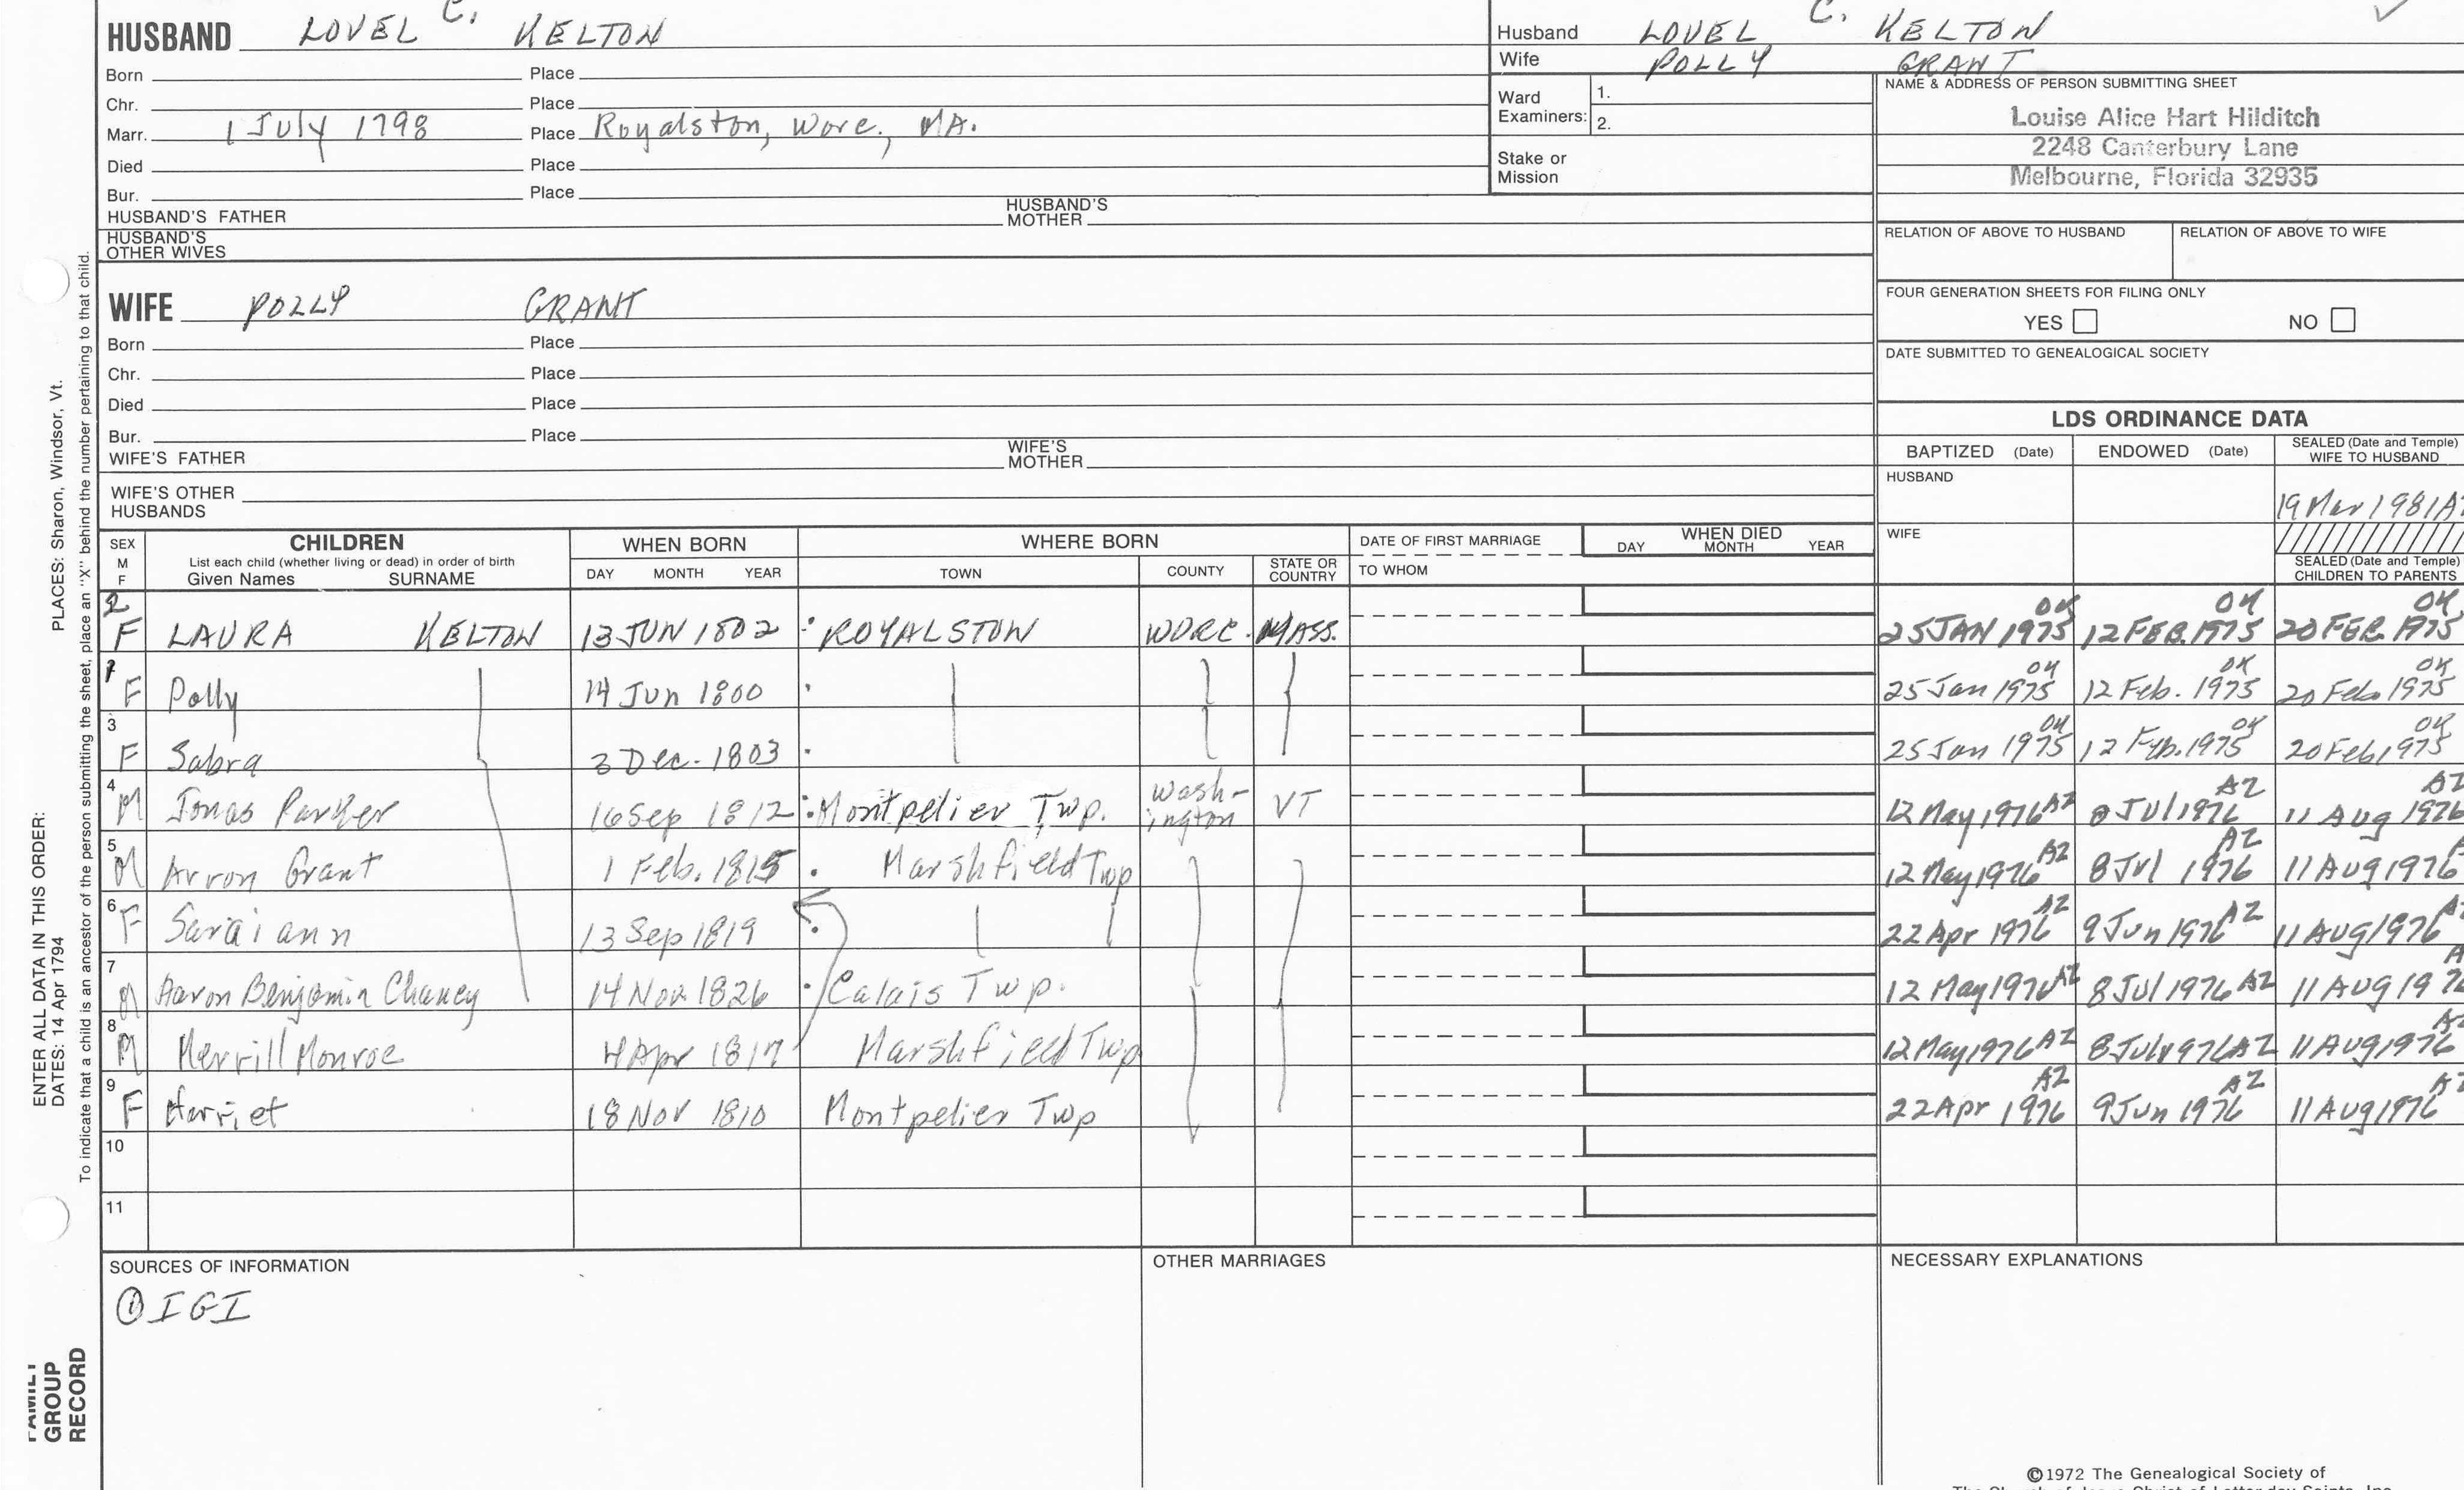 HUSBAND LOVEL C. KELTON
Born Place
Chr. Place
Marr. 1 July 1798 Place Royalston, Worc., MA.
Died Place
Bur. Place
HUSBAND'S FATHER HUSBAND'S MOTHER
HUSBAND'S OTHER WIVES
WIFE POLLY GRANT
Born Place
Chr. Place
Died Place
Bur. Place
WIFE'S FATHER WIFE'S MOTHER
WIFE'S OTHER HUSBANDS
Husband LOVEL C. KELTON
Wife POLLY GRANT
Ward Examiners: 1.
2.
Stake or Mission
NAME & ADDRESS OF PERSON SUBMITTING SHEET
Louise Alice Hart Hilditch
2248 Canterbury Lane
Melbourne, Florida 32935
RELATION OF ABOVE TO HUSBAND RELATION OF ABOVE TO WIFE
FOUR GENERATION SHEETS FOR FILING ONLY
YES NO
DATE SUBMITTED TO GENEALOGICAL SOCIETY
LDS ORDINANCE DATA
BAPTIZED (Date) ENDOWED (Date) SEALED (Date and Temple) WIFE TO HUSBAND
HUSBAND 19 Mar 1981 A
WIFE
SEALED (Date and Temple) CHILDREN TO PARENTS
SEX M F CHILDREN WHEN BORN WHERE BORN DATE OF FIRST MARRIAGE WHEN DIED
List each child (whether living or dead) in order of birth
Given Names SURNAME DAY MONTH YEAR TOWN COUNTY STATE OR COUNTRY TO WHOM DAY MONTH YEAR
2 F LAURA KELTON 13 JUN 1802 ROYALSTON WORC. MASS. 25 JAN 1975 OK 12 FEB. 1975 OK 20 FEB. 1975 OK
1 F Polly 14 Jun 1800 25 Jan 1975 OK 12 Feb. 1975 OK 20 Feb 1975 OK
3 F Sabra 3 Dec. 1803 25 Jan 1975 OK 12 Feb. 1975 OK 20 Feb 1975 OK
4 M Jonas Parker 16 Sep 1812 Montpelier Twp. Wash-ington VT 12 May 1976 AZ 8 Jul 1976 AZ 11 Aug 1976 AZ
5 M Arron Grant 1 Feb. 1815 Marshfield Twp 12 May 1976 AZ 8 Jul 1976 AZ 11 Aug 1976 A
6 F Saraiann 13 Sep 1819 22 Apr 1976 AZ 9 Jun 1976 AZ 11 Aug 1976 A
7 M Aaron Benjamin Chaney 14 Nov. 1826 Calais Twp. 12 May 1976 AZ 8 Jul 1976 AZ 11 Aug 197 A
8 M Merrill Monroe 4 Apr 1817 Marshfield Twp 12 May 1976 AZ 8 July 976 AZ 11 Aug 1976 AZ
9 F Harriet 18 Nov 1810 Montpelier Twp 22 Apr 1976 AZ 9 Jun 1976 AZ 11 Aug 1976 AZ
10
11
SOURCES OF INFORMATION OTHER MARRIAGES NECESSARY EXPLANATIONS
① IGI
©1972 The Genealogical Society of
The Church of Jesus Christ of Latter-day Saints, Inc.
ENTER ALL DATA IN THIS ORDER: PLACES: Sharon, Windsor, Vt.
DATES: 14 Apr 1794
To indicate that a child is an ancestor of the person submitting the sheet, place an "X" behind the number pertaining to that child.
FAMILY
GROUP
RECORD